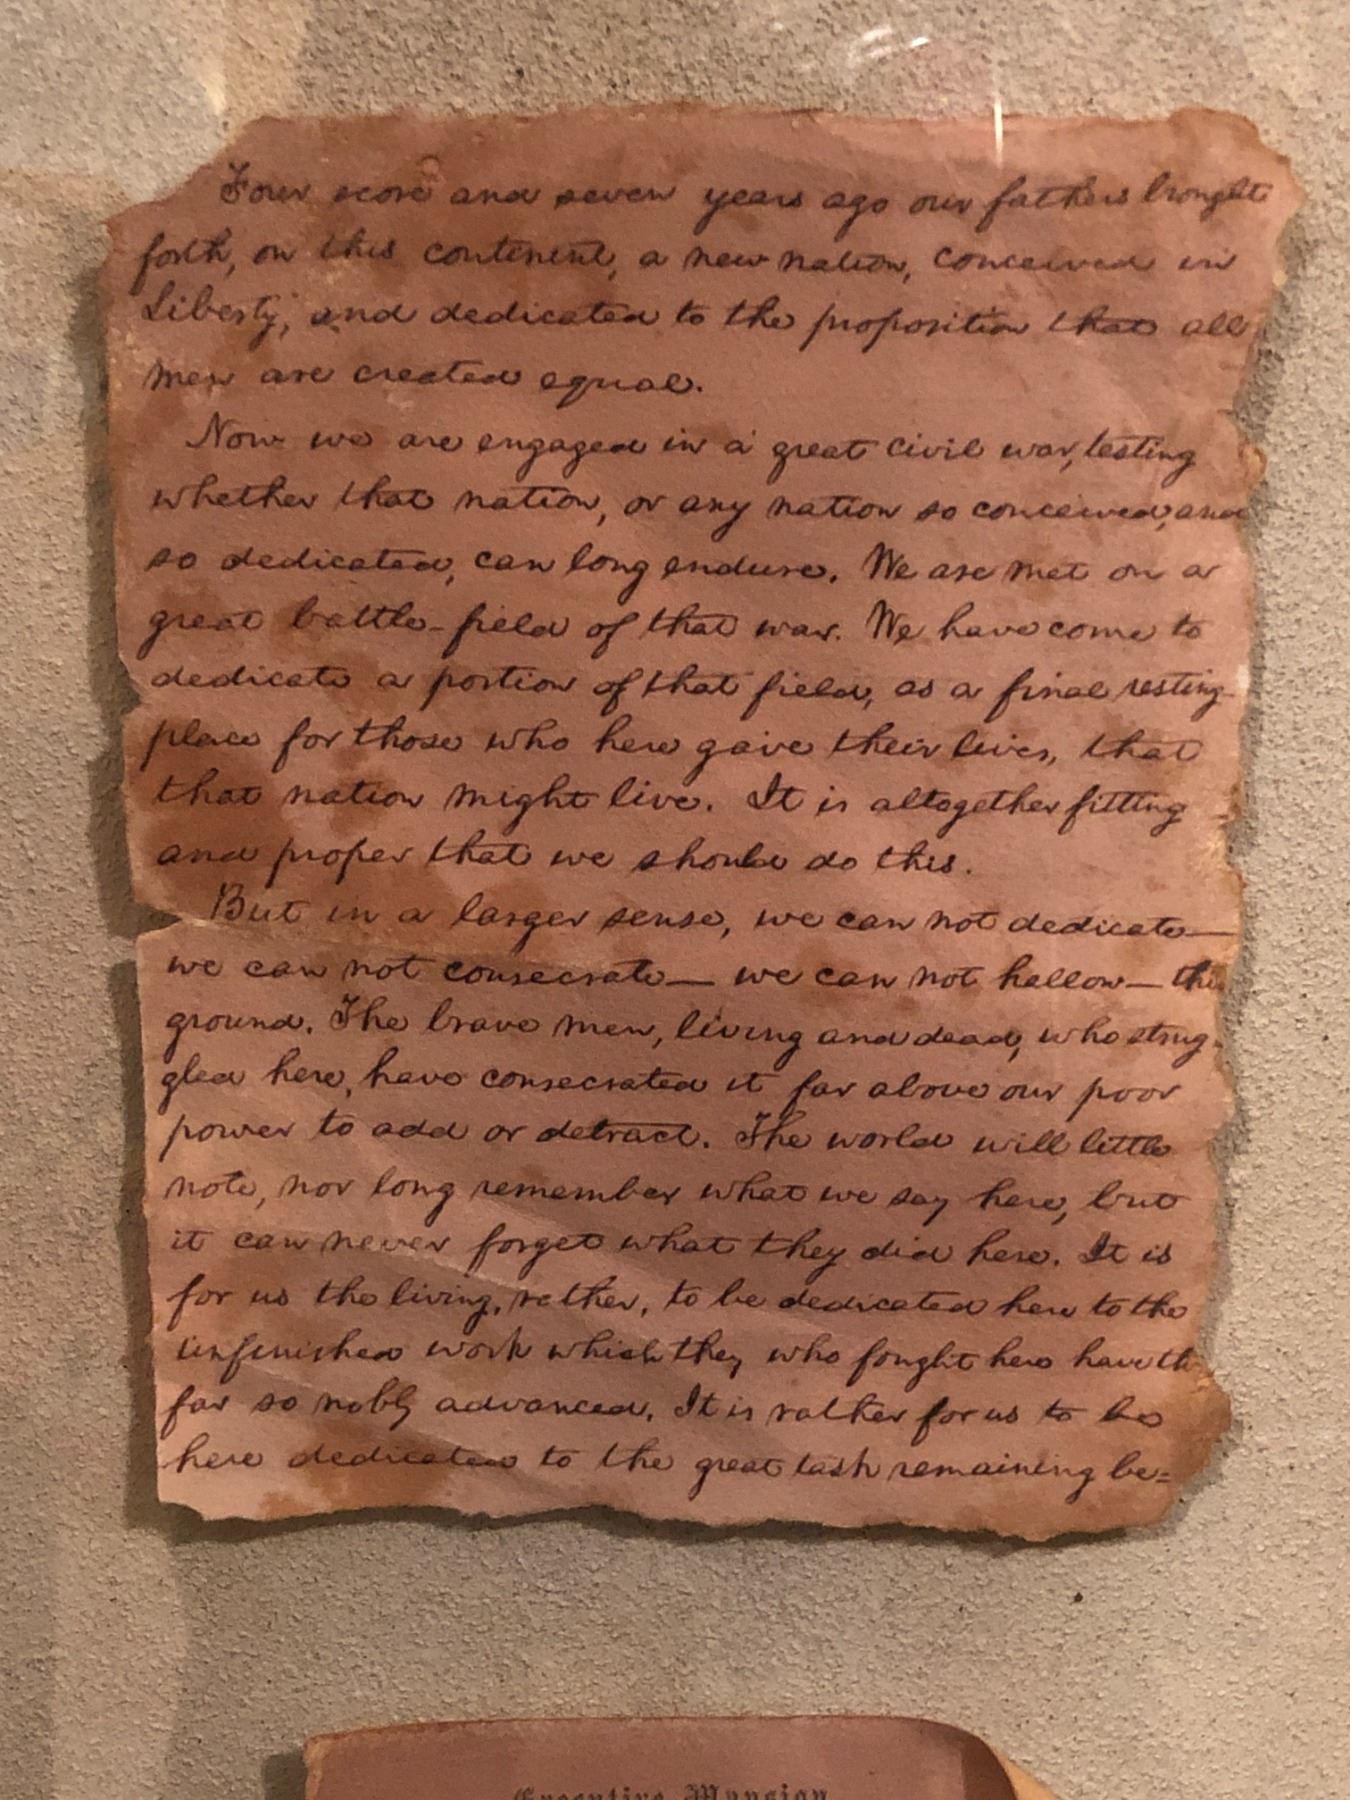 Four score and seven years ago our fathers brought
forth, on this continent, a new nation, conceived in
Liberty, and dedicated to the proposition that all
men are created equal.
Now we are engaged in a great civil war, testing
whether that nation, or any nation so conceived, and
so dedicated, can long endure. We are met on a
great battle-field of that war. We have come to
dedicate a portion of that field, as a final resting-
place for those who here gave their lives, that
that nation might live. It is altogether fitting
and proper that we should do this.
But in a larger sense, we can not dedicate—
we can not consecrate— we can not hallow— this
ground. The brave men, living and dead, who strug-
gled here, have consecrated it far above our poor
power to add or detract. The world will little
note, nor long remember what we say here, but
it can never forget what they did here. It is
for us the living, rather, to be dedicated here to the
unfinished work which they who fought here have th
far so nobly advanced. It is rather for us to be
here dedicated to the great task remaining be=
Executive Mansion